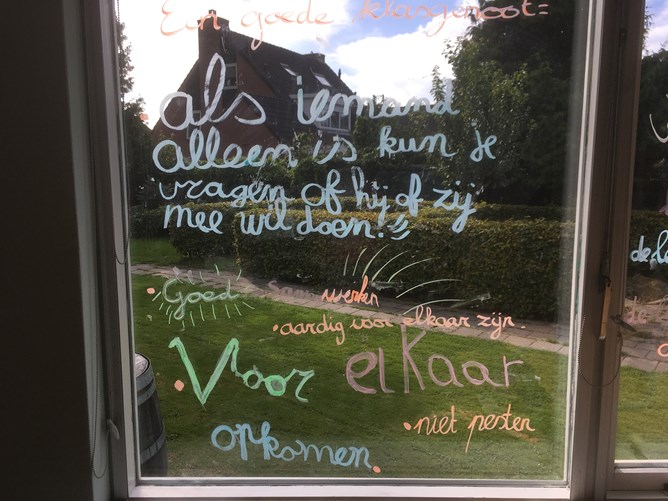 Een goede klasgenoot=
als iemand
alleen is kun je
vragen of hij of zij
mee wil doen!
• Goed samenwerken
• aardig voor elkaar zijn.
• Voor elkaar
opkomen.
• niet pesten